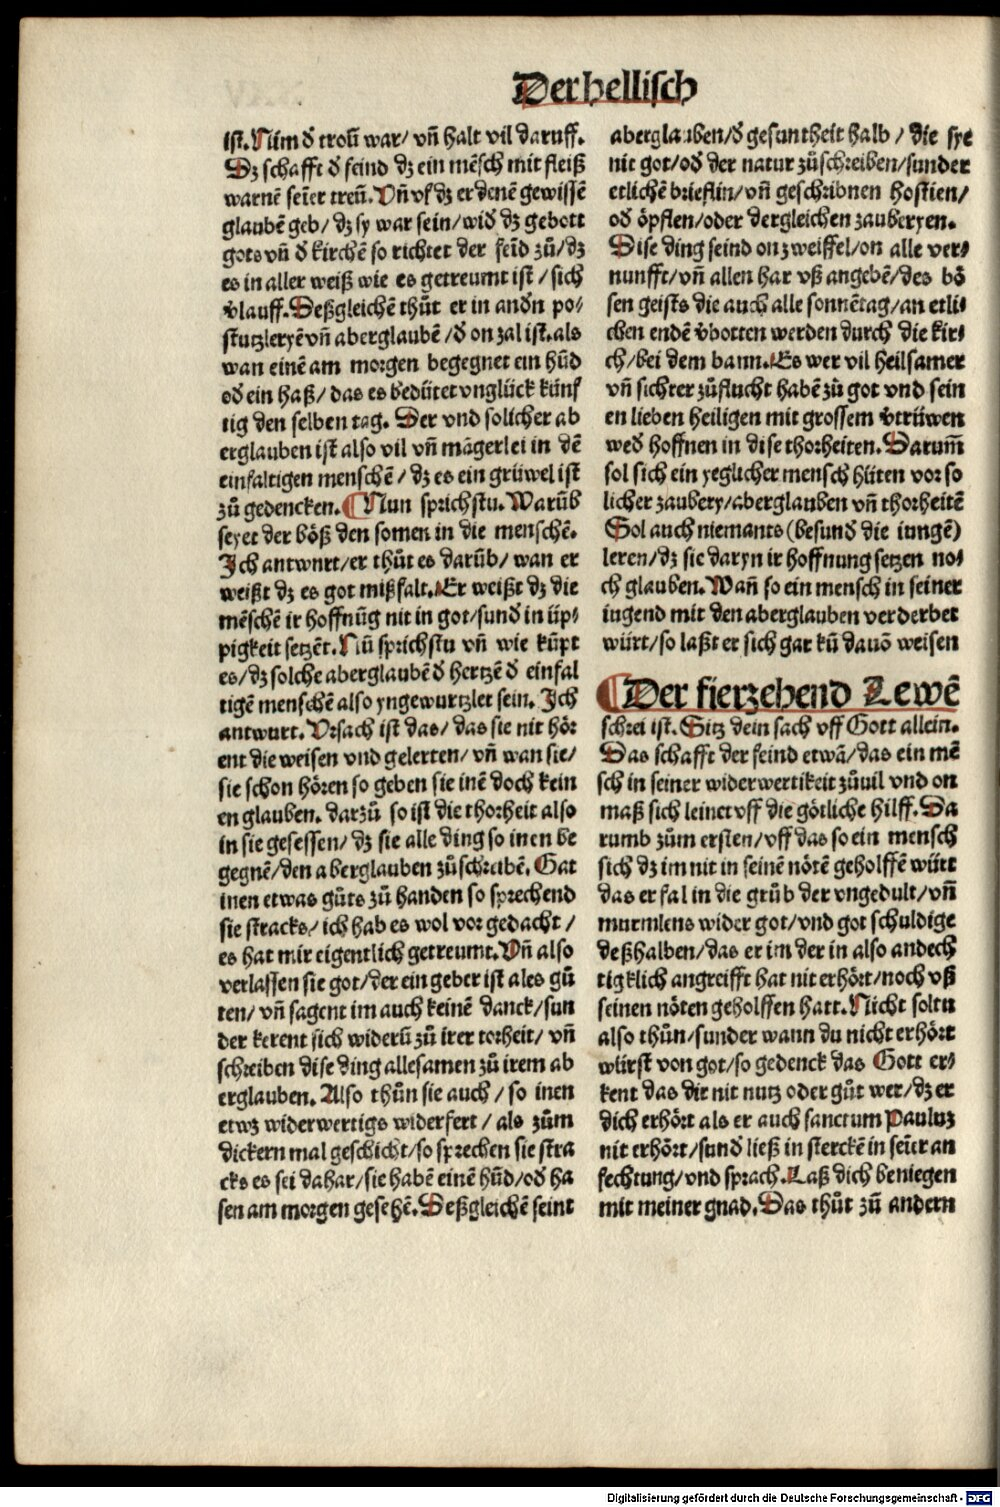 Der hellisch
ist. Nim đ troũ war/ vñ halt vil daruff.
Dz schafft đ feind dz ein mẽsch mit fleiß
warnẽ seĩer treũ. Vñ vſ dz er denẽ gewissẽ
glaubẽ geb/ dz sy war sein/ wiđ dz gebott
gots vñ đ kirchẽ so richtet der feĩd zů/ dz
es in aller weiß wie es getreumt ist/ sich
v̾lauff. Deßgleichẽ thůt er in andn̄ po⸗
stutzleryẽ vñ aberglaubẽ/ đ on zal ist. als
wan einẽ am morgen begegnet ein hũd
ođ ein haß/ das es bedütet vnglück künf
tig den selben tag. Der vnd solicher ab
erglauben ist also vil vñ mãgerlei in dẽ
einfaltigen menschẽ/ dz es ein grüwel ist
zů gedencken. ¶ Nun sprichstu. Warũb
seyet der böß den somen in die menschẽ.
Ich antwurt/ er thůt es darũb/ wan er
weißt dz es got mißfalt. Er weißt dz die
mẽschẽ ir hoffnũg nit in got/ sunđ in üp⸗
pigkeit setzẽt. Nũ sprichstu vñ wie kũpt
es/ dz solche aberglaubẽ đ hertzẽ đ einfal
tigẽ menschẽ also yngewurtzlet sein. Ich
antwurt. Vrsach ist das/ das sie nit hör
ent die weisen vnd gelerten/ vñ wan sie/
sie schon hören so geben sie inẽ doch kein
en glauben. darzů so ist die thorheit also
in sie gesessen/ dz sie alle ding so inen be
gegnẽ/ den aberglauben zů schreibẽ. Gat
inen etwas gůts zů handen so sprechend
sie stracks/ ich hab es wol vor gedacht/
es hat mir eigentlich getreumt. Vñ also
verlassen sie got/ der ein geber ist ales gů
ten/ vñ sagent im auch keinẽ danck/ sun
der kerent sich widerũ zů irer torheit/ vñ
schreiben dise ding allesamen zů irem ab
erglauben. Also thůn sie auch/ so inen
etwz widerwertigs widerfert/ als zům
dickern mal geschicht/ so sprechen sie stra
cks es sei dahar/ sie habẽ einẽ hũd/ ođ ha
sen am morgen gesehẽ. Deßgleichẽ seint
aberglauben/ đ gesuntheit halb/ die sye
nit got/ ođ der natur zů schreiben/ sunder
etlichẽ brieflin/ vñ geschribnen hostien/
ođ öpflen/ oder dergleichen zauberyen.
Dise ding seind on zweiffel/ on alle ver⸗
nunfft/ vñ allen har vß angebẽ/ des bö
sen geists die auch alle sonnẽtag/ an etli⸗
chen endẽ v̾botten werden durch die kir⸗
ch/ bei dem bann. Es wer vil heilsamer
vñ sichrer zůflucht habẽ zů got vnd sein
en lieben heiligen mit grossem v̾trüwen
weđ hoffnen in dise thorheiten. Darum̃
sol sich ein yeglicher mensch hüten vor so
licher zaubery/ aberglauben vñ thorheitẽ
Sol auch niemants (besunđ die iungẽ)
leren/ dz sie daryn ir hoffnung setzen no⸗
ch glauben. Wañ so ein mensch in seiner
iugend mit den aberglauben verderbet
würt/ so laßt er sich gar kũ dauõ weisen
¶ Der fierzehend Lewẽ
schrei ist. Sitz dein sach vff Gott allein.
Das schafft der feind etwã/ das ein mẽ
sch in seiner widerwertikeit zůuil vnd on
maß sich leinet vff die götliche hilff. Da
rumb zům ersten/ vff das so ein mensch
sich dz im nit in seinẽ nötẽ geholffẽ würt
das er fal in die grůb der vngedult/ vñ
murmlens wider got/ vnd got schuldige
deßhalben/ das er im der in also andech
tigklich angreifft hat nit erhört/ noch vß
seinen nöten geholffen hatt. Nicht soltu
also thůn/ sunder wann du nicht erhört
würst von got/ so gedenck das Gott er⸗
kent das dir nit nutz oder gůt wer/ dz er
dich erhört als er auch sanctum Pauluz
nit erhört/ sunđ ließ in sterckẽ in seĩer an
fechtung/ vnd sprach. Laß dich beniegen
mit meiner gnad. Das thůt zů andern
Digitalisierung gefördert durch die Deutsche Forschungsgemeinschaft - DFG